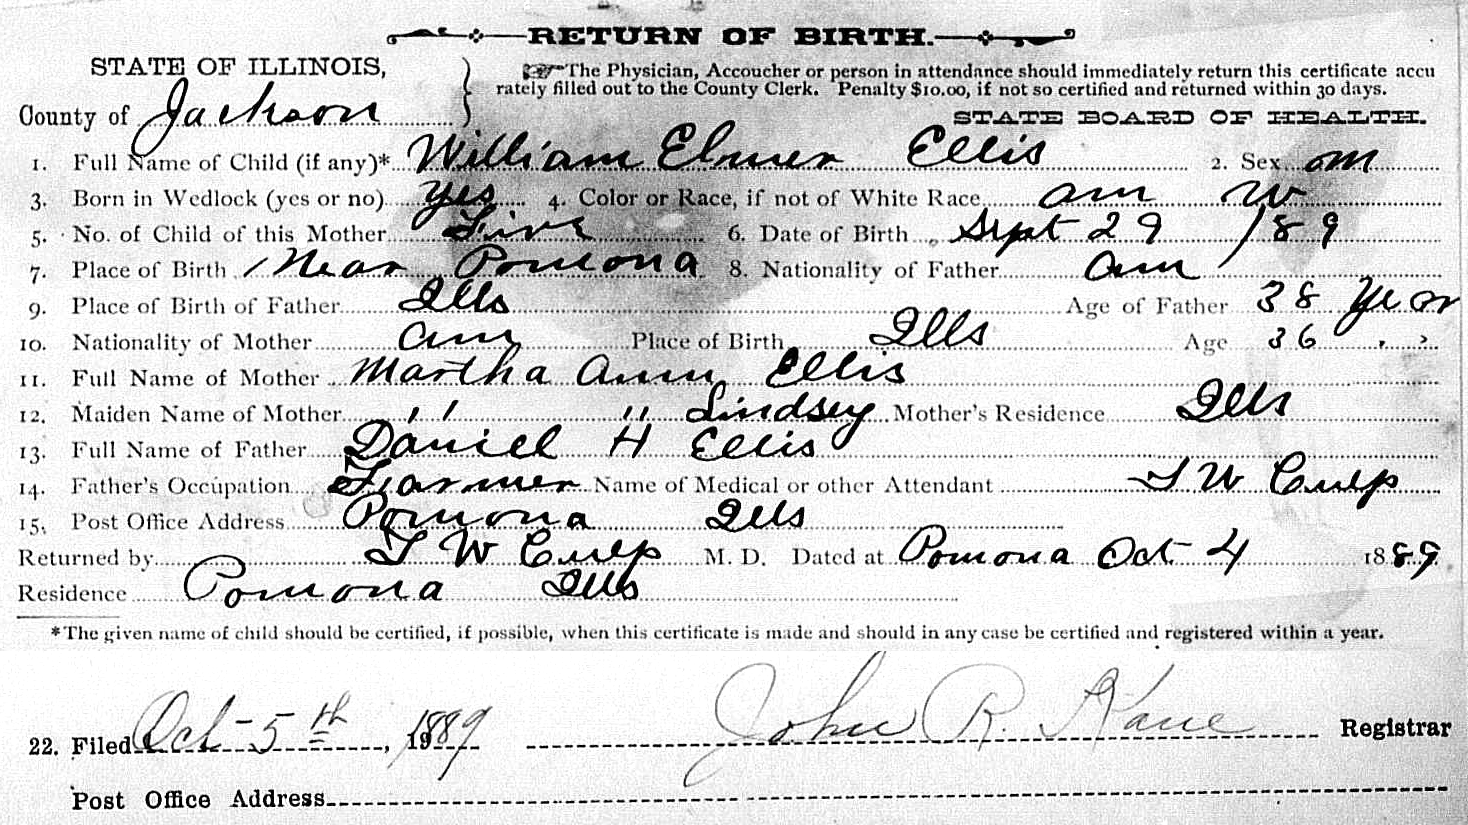 RETURN OF BIRTH.
STATE OF ILLINOIS,
County of Jackson
The Physician, Accoucher or person in attendance should immediately return this certificate accu
rately filled out to the County Clerk. Penalty $10.00, if not so certified and returned within 30 days.
STATE BOARD OF HEALTH.
1. Full Name of Child (if any)* William Elmer Ellis 2. Sex m
3. Born in Wedlock (yes or no) Yes 4. Color or Race, if not of White Race am W
5. No. of Child of this Mother Five 6. Date of Birth Sept 29 /89
7. Place of Birth Near Pomona 8. Nationality of Father am
9. Place of Birth of Father Ills Age of Father 38 Year
10. Nationality of Mother am Place of Birth Ills Age 36 , ,
11. Full Name of Mother Martha Ann Ellis
12. Maiden Name of Mother " " Lindsey Mother's Residence Ills
13. Full Name of Father Daniel H Ellis
14. Father's Occupation Farmer Name of Medical or other Attendant T W Culp
15. Post Office Address Pomona Ills
Returned by T W Culp M. D. Dated at Pomona Oct 4 1889
Residence Pomona Ills
*The given name of child should be certified, if possible, when this certificate is made and should in any case be certified and registered within a year.
22. Filed Oct 5th, 1889 John R. Kane Registrar
Post Office Address